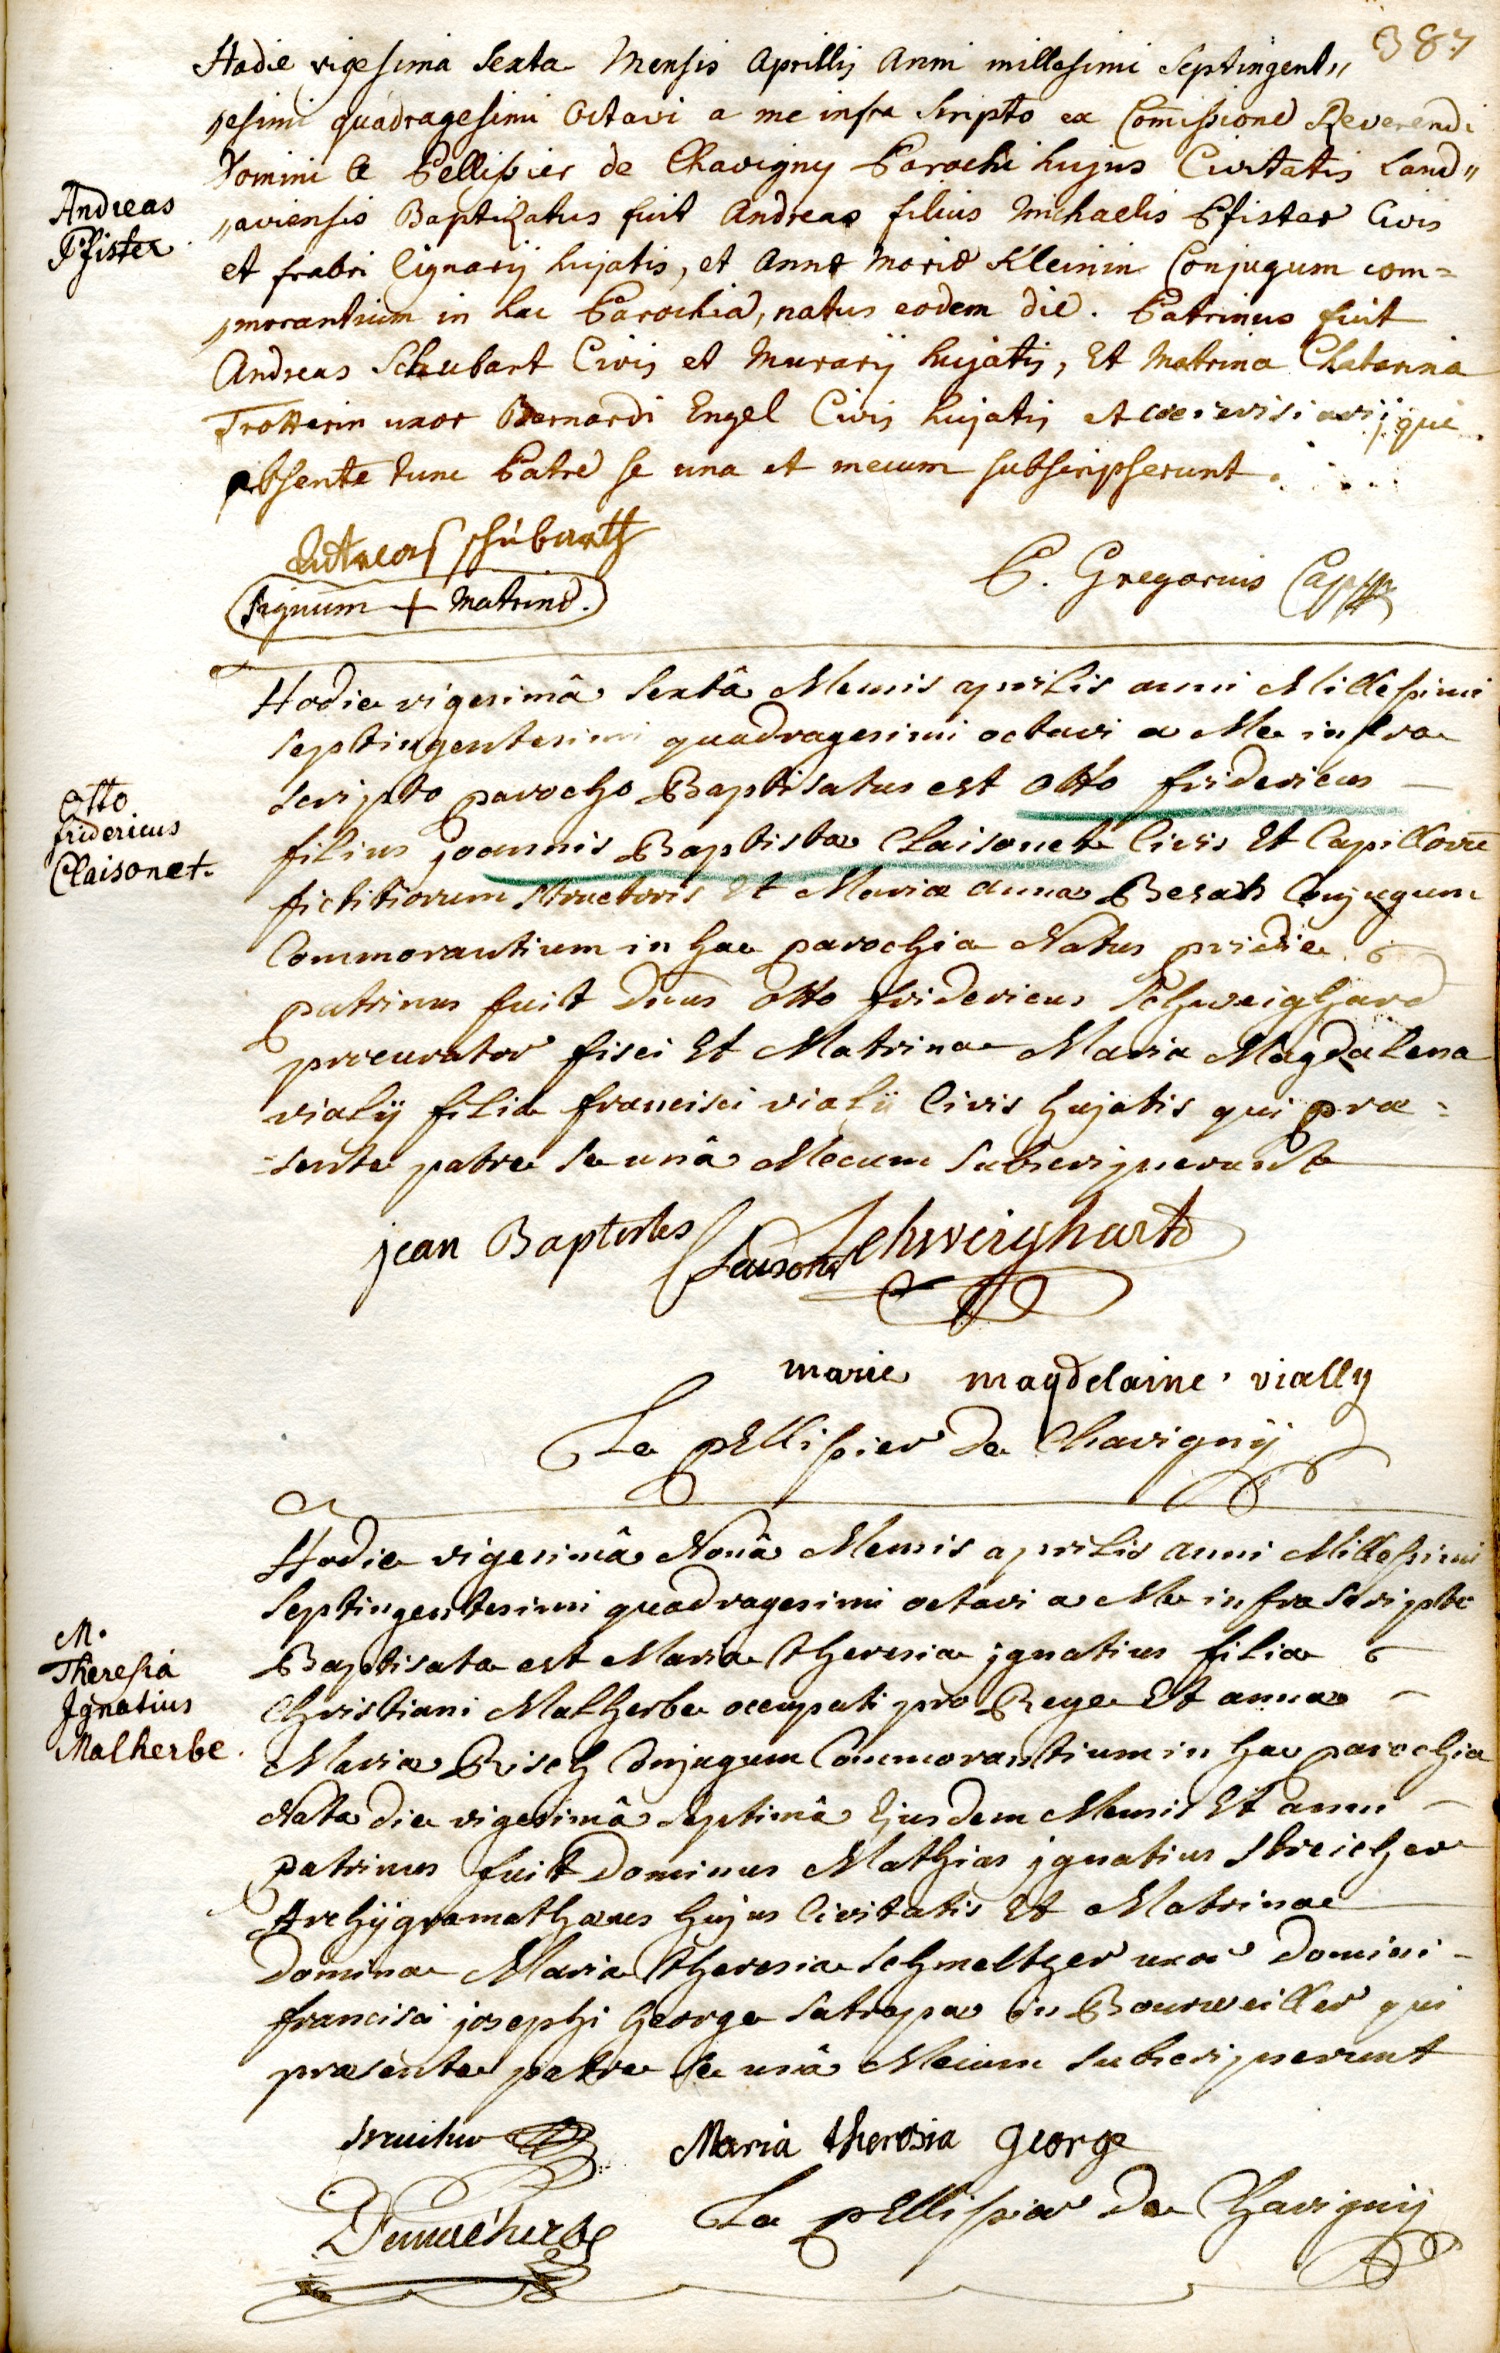 387
Hodie vigesima sexta Mensis Aprillis Anni millesimi Septingent„
„esimi quadragesimi Octavi a me infra scripto ex Com̃issione Reverendi
Domini Le Pellissier de Chavigny Parochi hujus Civitatis Land„
„aviensis Baptizatus fuit Andreas filius Michaelis Pfister Civis
et frabri lignarij hujatis, et Annæ Mariæ Kleinin Conjugum com=
„morantium in hac Parochia, natus eodem die. Patrinus fuit
Andreas Schubart Civis et Murarij hujatis, Et Matrina Chatarina
Trotterin uxor Bernardi Engel Civis hujatis et cerevisiarij, qui
absente tunc Patre se una et mecum subscripserunt.
Andreas
Pfister
Andreas schúbarth
Signum + Matrinæ.
P. Gregorius Capp
Hodie vigesimâ Sextâ Mensis aprilis anni Millessimi
Septingentesimi quadragesimi octavi a Me infra
scripto parocho Baptisatus est Otto fridericus
filius joannis Baptistæ Claisonet Civis Et Capillorũ
fictitiorum structoris Et Mariæ annæ Besat Conjugum
Commorantium in hac parochia Natus pridie
patrinus fuit Dnus Otto fridericus Schweighard
procurator fisci Et Matrina Maria Magdalena
vialÿ filia francisci vialÿ Civis hujatis qui præ=
=sente patre se unâ Mecum Subscripserunt
Otto
fridericus
Claisonet.
jean Baptistes
Claisonet Schweighart
marie magdelaine vially
Le pEllissier De Chavignÿ
Hodie vigesimâ Nonâ Mensis aprilis anni Millessimi
Septingentesimi quadragesimi octavi a Me infra Scripto
Baptisata est Maria theresia jgnatius filia
Christiani Malherbe occupati pro Rege Et annæ
Mariæ Risch Conjugum Commorantium in hac parochia
Nata die vigesimâ septimâ Ejusdem Mensis Et anni
patrinus fuit Dominus Mathias jgnatius Streicher
Archÿgramathæus hujus Civitatis Et Matrina
Domina Maria theresia Schmeltzer uxor Domini
francisci josephi George Satrapæ in Bourweiller qui
præsente patre se unâ Mecum Subscripserunt
M.
Theresia
Ignatius
Malherbe.
Streicher
Maria theresia george
Le pEllissier De Chavignÿ